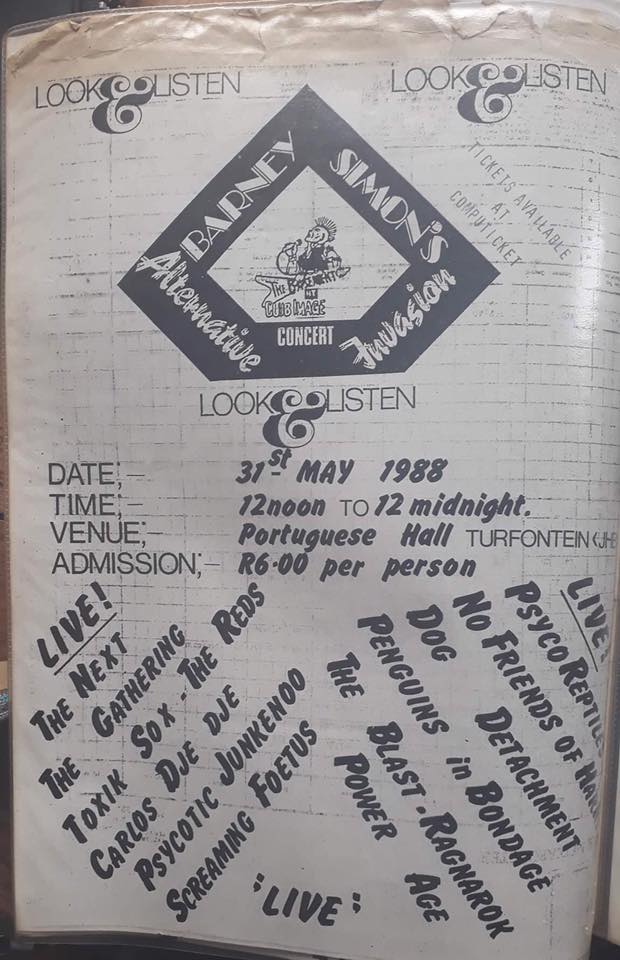 LOOK & LISTEN
LOOK & LISTEN
TICKETS AVAILABLE
AT
COMPUTICKET
BARNEY SIMON'S
Alternative Invasion
THE BASEMENT
AT
CLUB IMAGE
CONCERT
LOOK & LISTEN
DATE;- 31st MAY 1988
TIME;- 12noon TO 12 midnight.
VENUE;- Portuguese Hall TURFONTEIN
ADMISSION;- R6.00 per person
LIVE!
THE NEXT
THE GATHERING
TOXIK SOX - THE REDS
CARLOS DJE DJE
PSYCOTIC JUNKENOO
SCREAMING FOETUS
LIVE!
PSYCO REPTILE
NO FRIENDS OF
DOG DETACHMENT
PENGUINS in BONDAGE
THE BLAST - RAGNAROK
POWER AGE
"LIVE"